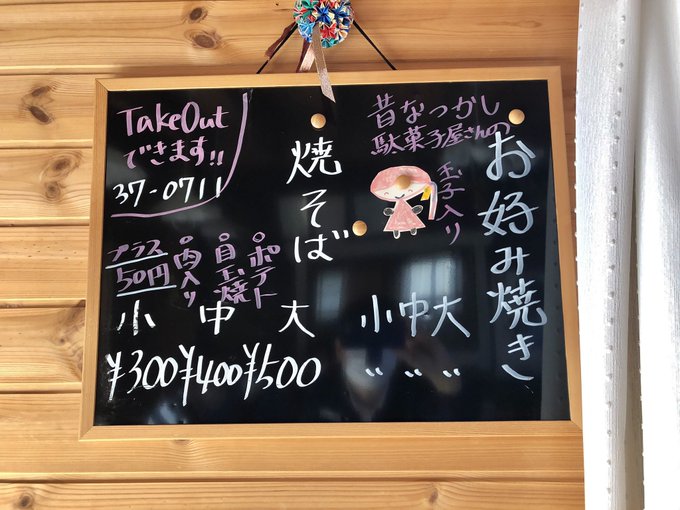 昔なつかし
駄菓子屋さんの
お好み焼き
玉子入り
小 中 大
〃 〃 〃
焼そば
ポテト
目玉焼
肉入り
プラス
50円
小 中 大
¥300 ¥400 ¥500
TakeOut
できます!!
37-0711